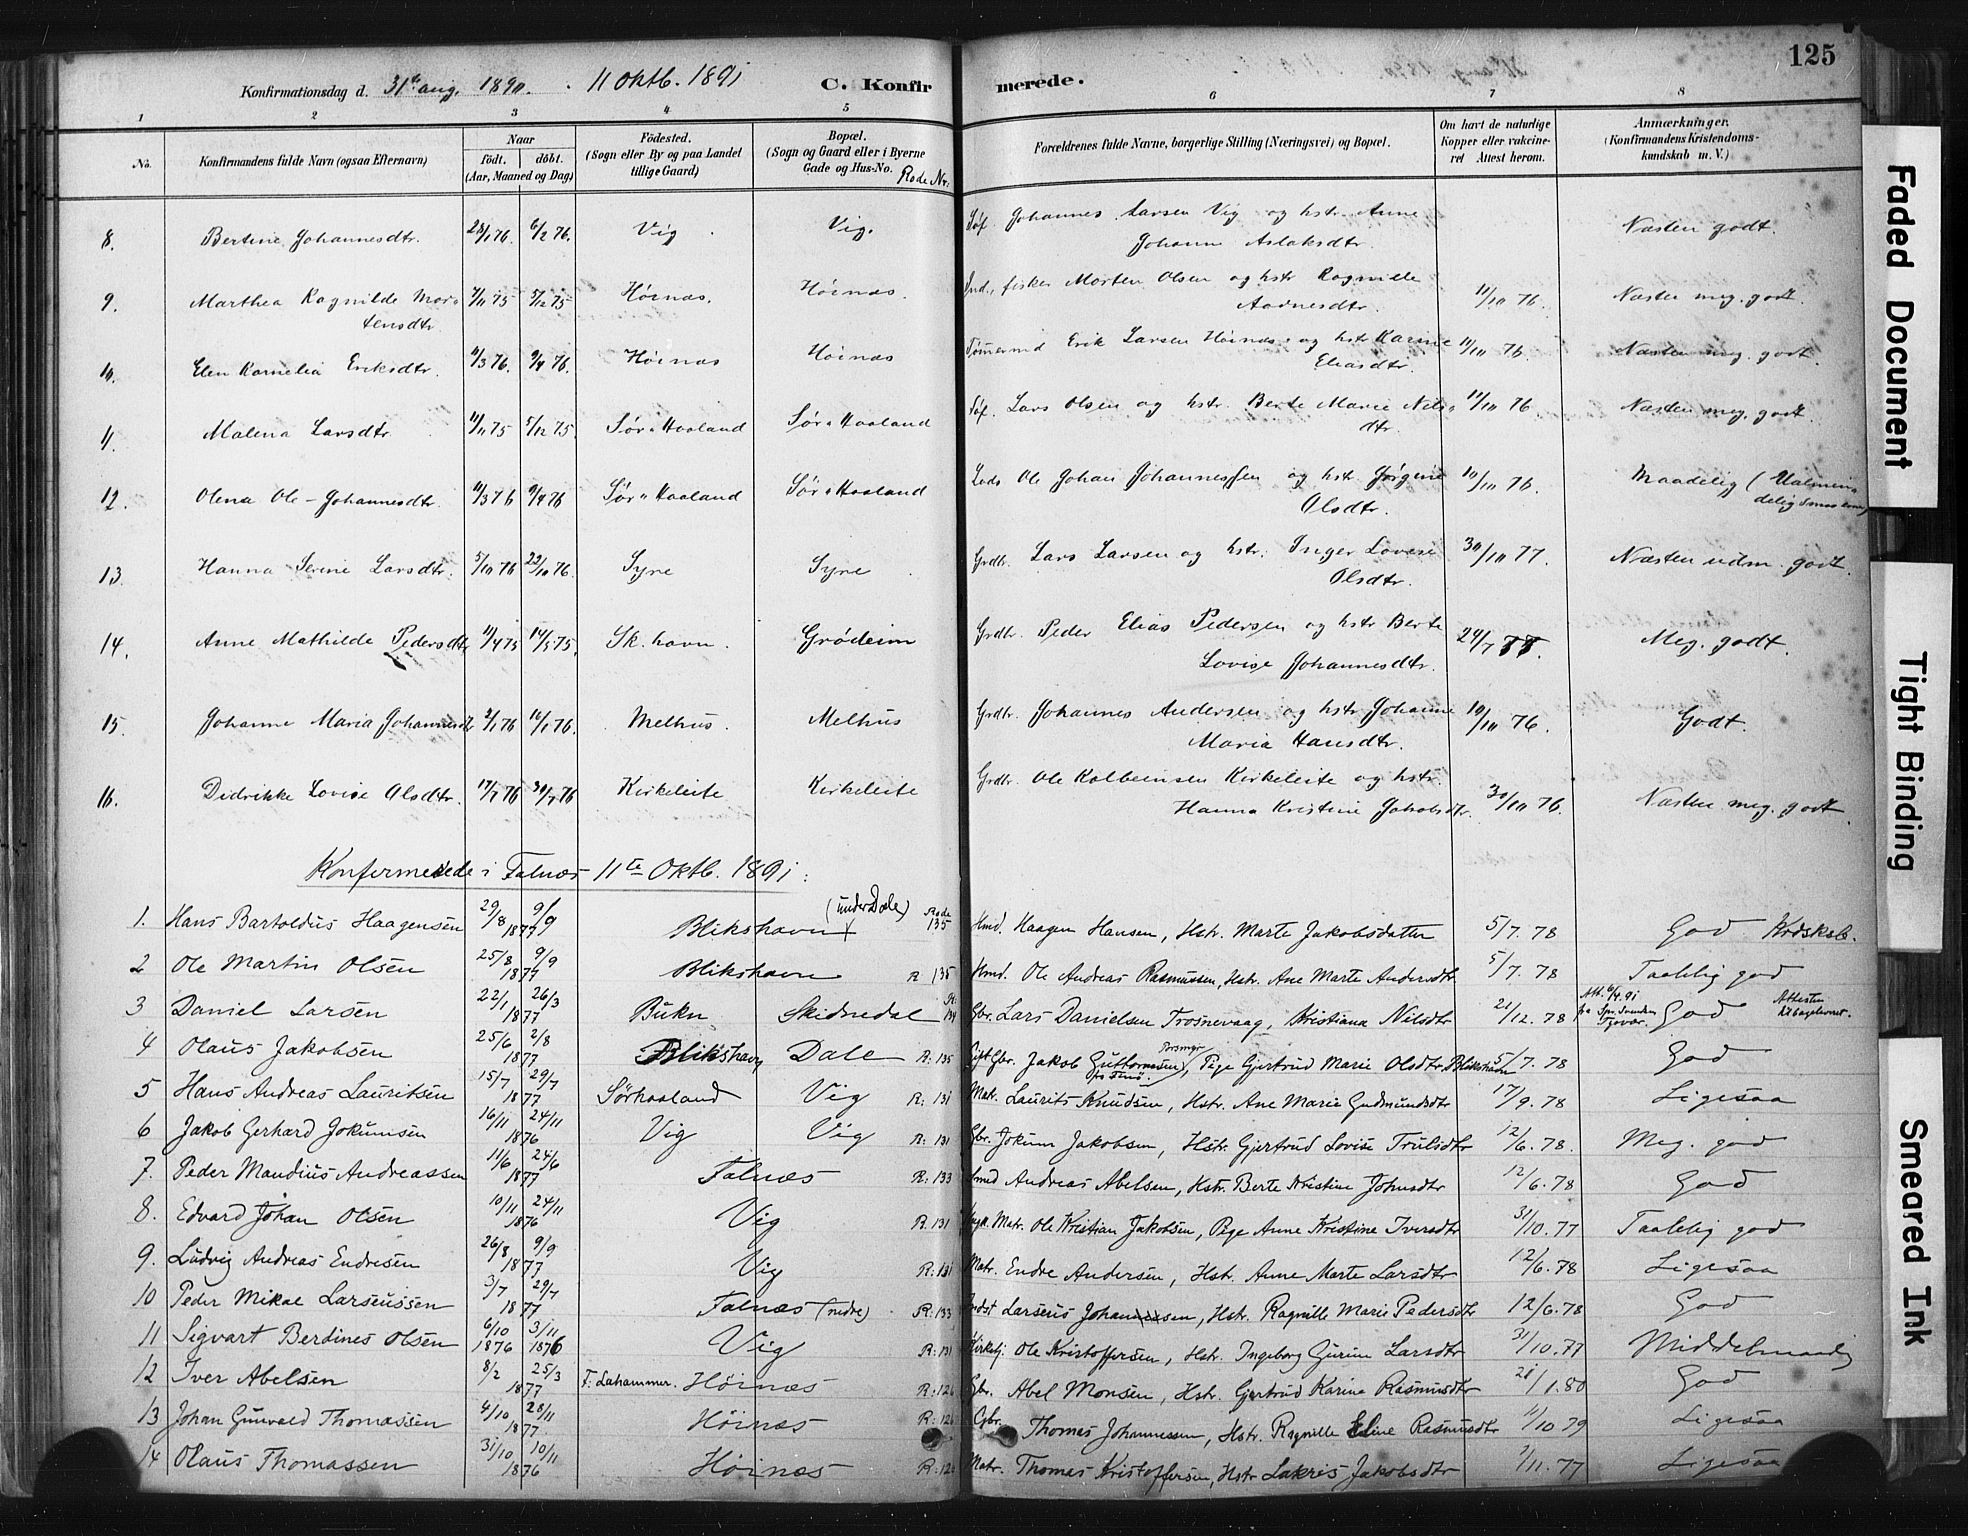 125
Konfirmationsdag d. 31te aug. 1890. 11 Oktb. 1891 C. Konfirmerede.
1 2 3 4 5 6 7 8
No. Konfirmandens fulde Navn (ogsaa Efternavn) Naar födt. döbt. (Aar, Maaned og Dag) Födested. (Sogn eller By og paa Landet tillige Gaard) Bopæl. (Sogn og Gaard eller i Byerne Gade og Hus-No. Rode Nr. Forældrenes fulde Navne, borgerlige Stilling (Næringsvei) og Bopæl. Om havt de naturlige Kopper eller vakcineret Attest herom. Anmærkninger. (Konfirmandens Kristendomskundskab m. V.)
8. Bertine Johannesdtr. 28/1 76. 6/2 76. Vig Vig. Johannes Larsen Vig og hstr. Anne
Johanne Aslaksdtr. Næsten godt.
9. Marthea Ragnilde Mor-
tensdtr. 7/11 75 5/12 75 Höinæs. Höinæs. Ind., fisker Morten Olsen og hstr Ragnille
Aadnesdtr. 11/10 76. Næsten meg. godt.
10. Elen Kornelia Eriksdtr. 11/3 76. 9/4 76. Höinæs Höinæs Tömermd Erik Larsen Höinæs og hstr. Karine
Eliasdtr. 11/10 76. Næsten meg. godt.
11. Malena Larsdtr. 11/11 75 5/12 75. Sör-Haaland Sör-Haaland Lars Olsen og hstr. Berte Marie Nils-
dtr. 11/10 76 Næsten meg. godt.
12. Olena Ole-Johannesdtr. 11/3 76 9/4 76 Sör-Haaland Sör-Haaland Ole Johan Johannessen og hstr. Jörgine
Olsdtr. 10/10 76. Maadelig
13. Hanna Serine Larsdtr. 5/10 76 22/10 76. Syre Syre Grdbr. Lars Larsen og hstr. Inger Lovise
Olsdtr. 30/10 77. Næsten udm. godt.
14. Anne Mathilde Pedersdtr 11/4 75 14/5 75. Sk.havn. Grödeim Grdbr. Peder Elias Pedersen og hstr Berte
Lovise Johannesdtr. 24/7 Meg. godt.
15. Johanne Maria Johannesdtr 2/1 76 16/1 76. Melhus. Melhus Grdbr. Johannes Andersen og hstr Johanne
Maria Hansdtr. 10/10 76. Godt.
16. Didrikke Lovise Olsdtr. 17/7 76 30/7 76 Kirkeleite Kirkeleite Grdbr. Ole Kolbeinsen Kirkeleite og hstr.
Hanna Kristine Jakobsdtr. 30/10 76. Næsten meg. godt.
Konfirmerede i Falnæs 11te Oktb. 1891:
1. Hans Bartoldus Haagensen 29/8 9/9 1877 Blikshavn (under Dale) Rode 135 Hmd. Haagen Hansen, Hstr. Marte Jakobsdatter 5/7. 78 God Krdskab.
2 Ole Martin Olsen 25/8 9/9 1877 Blikshavn R 135 Hmd. Ole Andreas Rasmussen, Hstr. Ane Marte Andersdtr 5/7. 78 Taalelig god
3 Daniel Larsen 22/1 26/3 1877 Bukn Skidnedal Gbr. Lars Danielsen Trosnevaag, Kristiana Nilsdtr 21/12. 78 God Attesten tilbagelevert.
4 Olaus Jakobsen 25/6 2/8 1877 Blikshavn Dale R: 135 Gbr. Jakob Guttormsen, Pige Gjertrud Marie Olsdtr Blikshavn 5/7. 78 God
5 Hans Andreas Lauritsen 15/7 29/7 1877 Sörhaaland Vig R: 131 Matr. Laurits Knudsen, Hstr. Ane Marie Gudmundsdtr 17/9. 78 Ligesaa
6 Jakob Gerhard Jokumsen 16/11 24/11 1876 Vig Vig R: 131 Gbr. Jokum Jakobsen, Hstr. Gjertrud Lovise Trulsdtr 12/6. 78. Meg. god
7. Peder Mandius Andreassen 11/6 24/6 1877 Falnæs R: 133 Smed Andreas Abelsen, Hstr. Berte Kristine Johnsdtr 12/6. 78 God
8. Edvard Johan Olsen 10/11 24/11 1876 Vig R. 131 Matr. Ole Kristian Jakobsen, Pige Anne Kristine Iversdtr 31/10. 77 Taalelig god
9. Ludvig Andreas Endresen 26/8 9/9 1877 Vig R: 131 Matr. Endre Andersen, Hstr. Anne Marte Larsdtr 12/6. 78 Ligesaa
10 Peder Mikal Larseussen 3/7 29/7 1877 Falnæs (nedre) R: 133 Larseus Johannessen, Hstr. Ragnille Marie Pedersdtr 12/6. 78 God
11 Sigvart Berdines Olsen 6/10 1876 3/11 1876 Vig R: 131 Kirkesj. Ole Kristoffersen, Hstr. Ingeborg Gurine Larsdtr 31/10. 77 Middelmaadig
12 Iver Abelsen 8/2 25/3 1877 F: Lahammer. Höinæs R: 126 Gbr. Abel Monsen, Hstr. Gjertrud Karine Rasmusdtr 28/1. 80 God
13 Johan Gunvald Thomassen 4/10 28/11 1877. Höinæs R: 126 Gbr. Thomas Johannessen, Hstr. Ragnille Eline Rasmusdtr 11/10 79 Ligesaa
14 Olaus Thomassen 31/10 10/11 1876 Höinæs R: 126 Matr. Thomas Kristoffersen, Hstr Lakris Jakobsdtr 1/11. 77 Ligesaa
Faded Document
Tight Binding
Smeared Ink